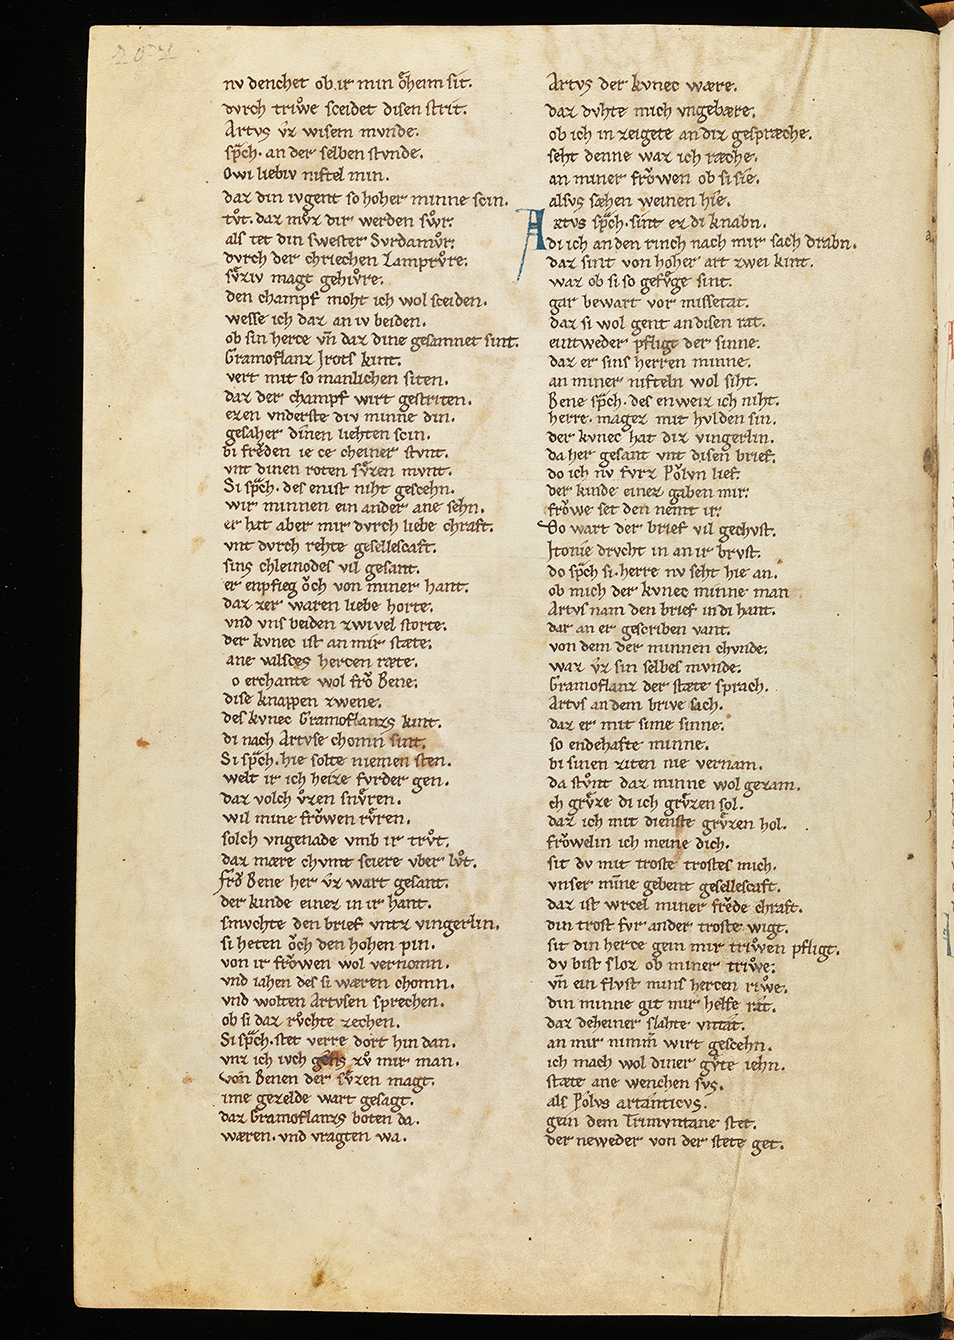 nv denchet ob ir min oͤheim sit.
dvrch triwͦe sceidet disen strit.
Artvs vͦz wisem mvnde.
sp̄ch. an der selben stvnde.
Owi liebiv niftel min.
daz din ivgent so hoher minne scin.
tvͦt. daz mvͦz dir werden svͦr.
als tet din swester Svrdamvͦr.
dvrch der chriechen Lamprvͦre.
svͤziv magt gehivͦre.
den champf moht ich wol sceiden.
wesse ich daz an iv beiden.
ob sin herce vn̄ daz dine gesamnet sint.
Gramoflanz Jrots kint.
vert mit so manlichen siten.
daz der champf wirt gestriten.
ezen vnderste div minne din.
gesaher dinen liehten scin.
bi frͤden ie ce cheiner stvnt.
vnt dinen roten svͤzen mvnt.
Si sp̄ch. des enist niht gescehn.
wir minnen ein ander ane sehn.
er hat aber mir dvrch liebe chraft.
vnt dvrch rehte gesellescaft.
sins chleinodes vil gesant.
er enpfieg oͮch von miner hant.
daz zer waren liebe horte.
vnd vns beiden zwivel storte.
der kvnec ist an mir stæte.
ane valsces hercen ræte.
o erchante wol froͮ Bene.
dise knappen zwene.
des kvnec Gramoflanzs kint.
di nach Artvse chomn sint.
Si sp̄ch. hie solte niemen sten.
welt ir ich heize fvrder gen.
daz volch vͦzen snvͤren.
wil mine froͮwen rvͤren.
solch vngenade vmb ir trvͦt.
daz mære chvmt sciere vber lvͦt.
froͮ Bene her vͦz wart gesant.
der kinde einez in ir hant.
smvchte den brief vntz vingerlin.
si heten oͮch den hohen pin.
von ir froͮwen wol vernomn.
vnd iahen des si wæren chomn.
vnd wolten Artvsen sprechen.
ob si daz rvͦchte zechen.
Si sp̄ch. stet verre dort hin dan.
vnz ich ivch gens zvͦ mir man.
von Benen der svͤzen magt.
ime gezelde wart gesagt.
daz Gramoflanzs boten da.
wæren. vnd vragten wa.
Artvs der kvnec wære.
daz dvhte mich vngebære.
ob ich in zeigete an diz gespræche.
seht denne waz ich ræche.
an miner froͮwen ob si sie.
alsvs sæhen weinen hie.
Artvs sp̄ch. sint ez di knabn.
di ich an den rinch nach mir sach drabn.
daz sint von hoher art zwei kint.
waz ob si so gefvͤge sint.
gar bewart vor missetat.
daz si wol gent an disen rat.
eintweder pfligt der sinne.
daz er sins herren minne.
an miner nifteln wol siht.
Bene sp̄ch. des enweiz ich niht.
herre. magez mit hvlden sin.
der kvnec hat diz vingerlin.
da her gesant vnt disen brief.
do ich nv fvrz Poͮlvn lief.
der kinde einez gaben mir.
froͮwe set den nemt ir.
Do wart der brief vil gechvst.
Jtonie drvcht in an ir brvst.
do sp̄ch si. herre nv seht hie an.
ob mich der kvnec minne man
Artvs nam den brief in di hant.
dar an er gescriben vant.
von dem der minnen chvnde.
waz vͦz sin selbes mvnde.
Gramoflanz der stæte sprach.
Artvs an dem brive sach.
daz er mit sime sinne.
so endehafte minne.
bi sinen ziten nie vernam.
da stvͦnt daz minne wol gezam.
ch grvͤze di ich grvͤzen sol.
daz ich mit dienste grvͤzen hol.
froͮwelin ich meine dich.
sit dv mit troste trostes mich.
vnser mīne gebent gesellescaft.
daz ist wrcel miner frͤde chraft.
din trost fvr ander troste wigt.
sit din herce gein mir triwͦen pfligt.
dv bist sloz ob miner triwͦe.
vn̄ ein flvst mins hercen riwͦe.
din minne git mir helfe rat.
daz deheiner slahte vntat.
an mir nimm̄ wirt gescehn.
ich mach wol diner gvͤte iehn.
stæte ane wenchen svs.
als Polvs artanticvs.
gein dem Trimvntane stet.
der neweder von der stete get.